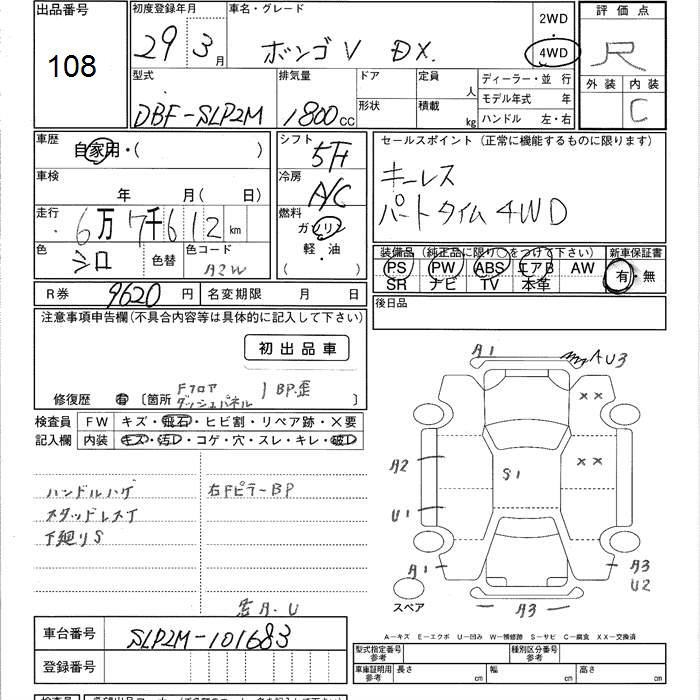 出品番号 初度登録年月 車名・グレード 2WD 評価点
108 29 3月 ボンゴV DX. 4WD R
型式 排気量 ドア 定員 人 ディーラー・並行 外装 内装
DBF-SLP2M 1800cc 形状 積載 kg モデル年式 年 C
ハンドル 左・右
車歴 自家用・( ) シフト 5F セールスポイント (正常に機能するものに限ります)
車検 年 月( 日) 冷房 A/C キーレス
走行 6万7千612km 燃料 ガソリン パートタイム4WD
色 シロ 色替 色コード A2W 軽・油 ( )
装備品 (純正品に限り○をつけて下さい) 新車保証書
PS PW ABS エアB AW 有・無
SR ナビ TV 本革
R券 9620円 名変期限 月 日 後日品
注意事項申告欄(不具合内容等は具体的に記入して下さい)
初出品車
修復歴 有 [箇所 Fフロア ダッシュパネル 1BP歪 ]
検査員 FW キズ・飛石・ヒビ割・リペア跡・×要
記入欄 内装 キズ・汚レ・コゲ・穴・スレ・キレ・破レ
ハンドルハゲ 右FピラーBP
スタッドレスT
下廻りS
A.U
A1 AU3
××
A2 S1 ××
U1
A1 A3
U2
スペア A3
A-キズ E-エクボ U-凹み W-補修跡 S-サビ C-腐食 XX-交換済
車台番号 SLP2M-101683
登録番号
型式指定番号 参考 種別区分番号 参考
車庫証明用 参考 長さ cm 幅 cm 高さ cm